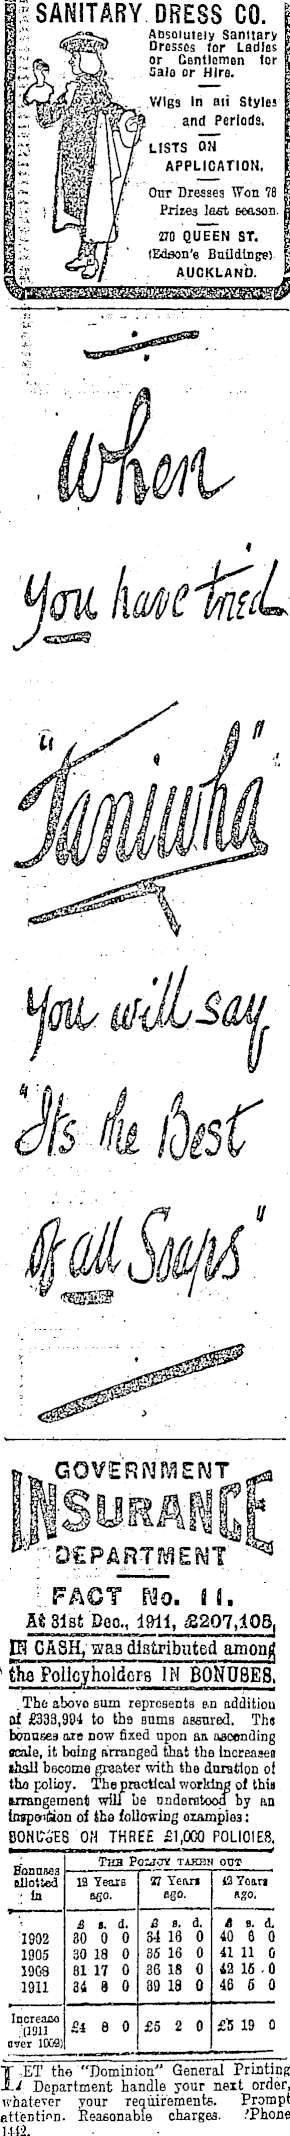 SANITARY DRESS CO.
Absolutely Sanitary
Dresses for Ladies
or Gentlemen for
Sale or Hire.
Wigs in all Styles
and Periods.
LISTS ON
APPLICATION.
Our Dresses Won 78
Prizes last season.
270 QUEEN ST.
(Edson's Buildings)
AUCKLAND.
When
you have tried
"Taniwha"
you will say
"Its the Best
of all Soaps"
GOVERNMENT
INSURANCE
DEPARTMENT
FACT No. 11.
At 31st Dec., 1911, £207,105,
IN CASH, was distributed among
the Policyholders IN BONUSES.
The above sum represents an addition
of £333,994 to the sums assured. The
bonuses are now fixed upon an ascending
scale, it being arranged that the increases
shall become greater with the duration of
the policy. The practical working of this
arrangement will be understood by an
inspection of the following examples:
BONUSES ON THREE £1,000 POLICIES.
Bonuses allotted in | THE POLICY TAKEN OUT
12 Years ago. | 27 Years ago. | 42 Years ago.
£ s. d. | £ s. d. | £ s. d.
1902 | 30 0 0 | 34 16 0 | 40 6 0
1905 | 30 18 0 | 35 16 0 | 41 11 0
1908 | 31 17 0 | 36 18 0 | 42 15 0
1911 | 34 8 0 | 39 18 0 | 46 5 0
Increase (1911 over 1902) | £4 8 0 | £5 2 0 | £5 19 0
LET the "Dominion" General Printing
Department handle your next order,
whatever your requirements. Prompt
attention. Reasonable charges. 'Phone
1442.